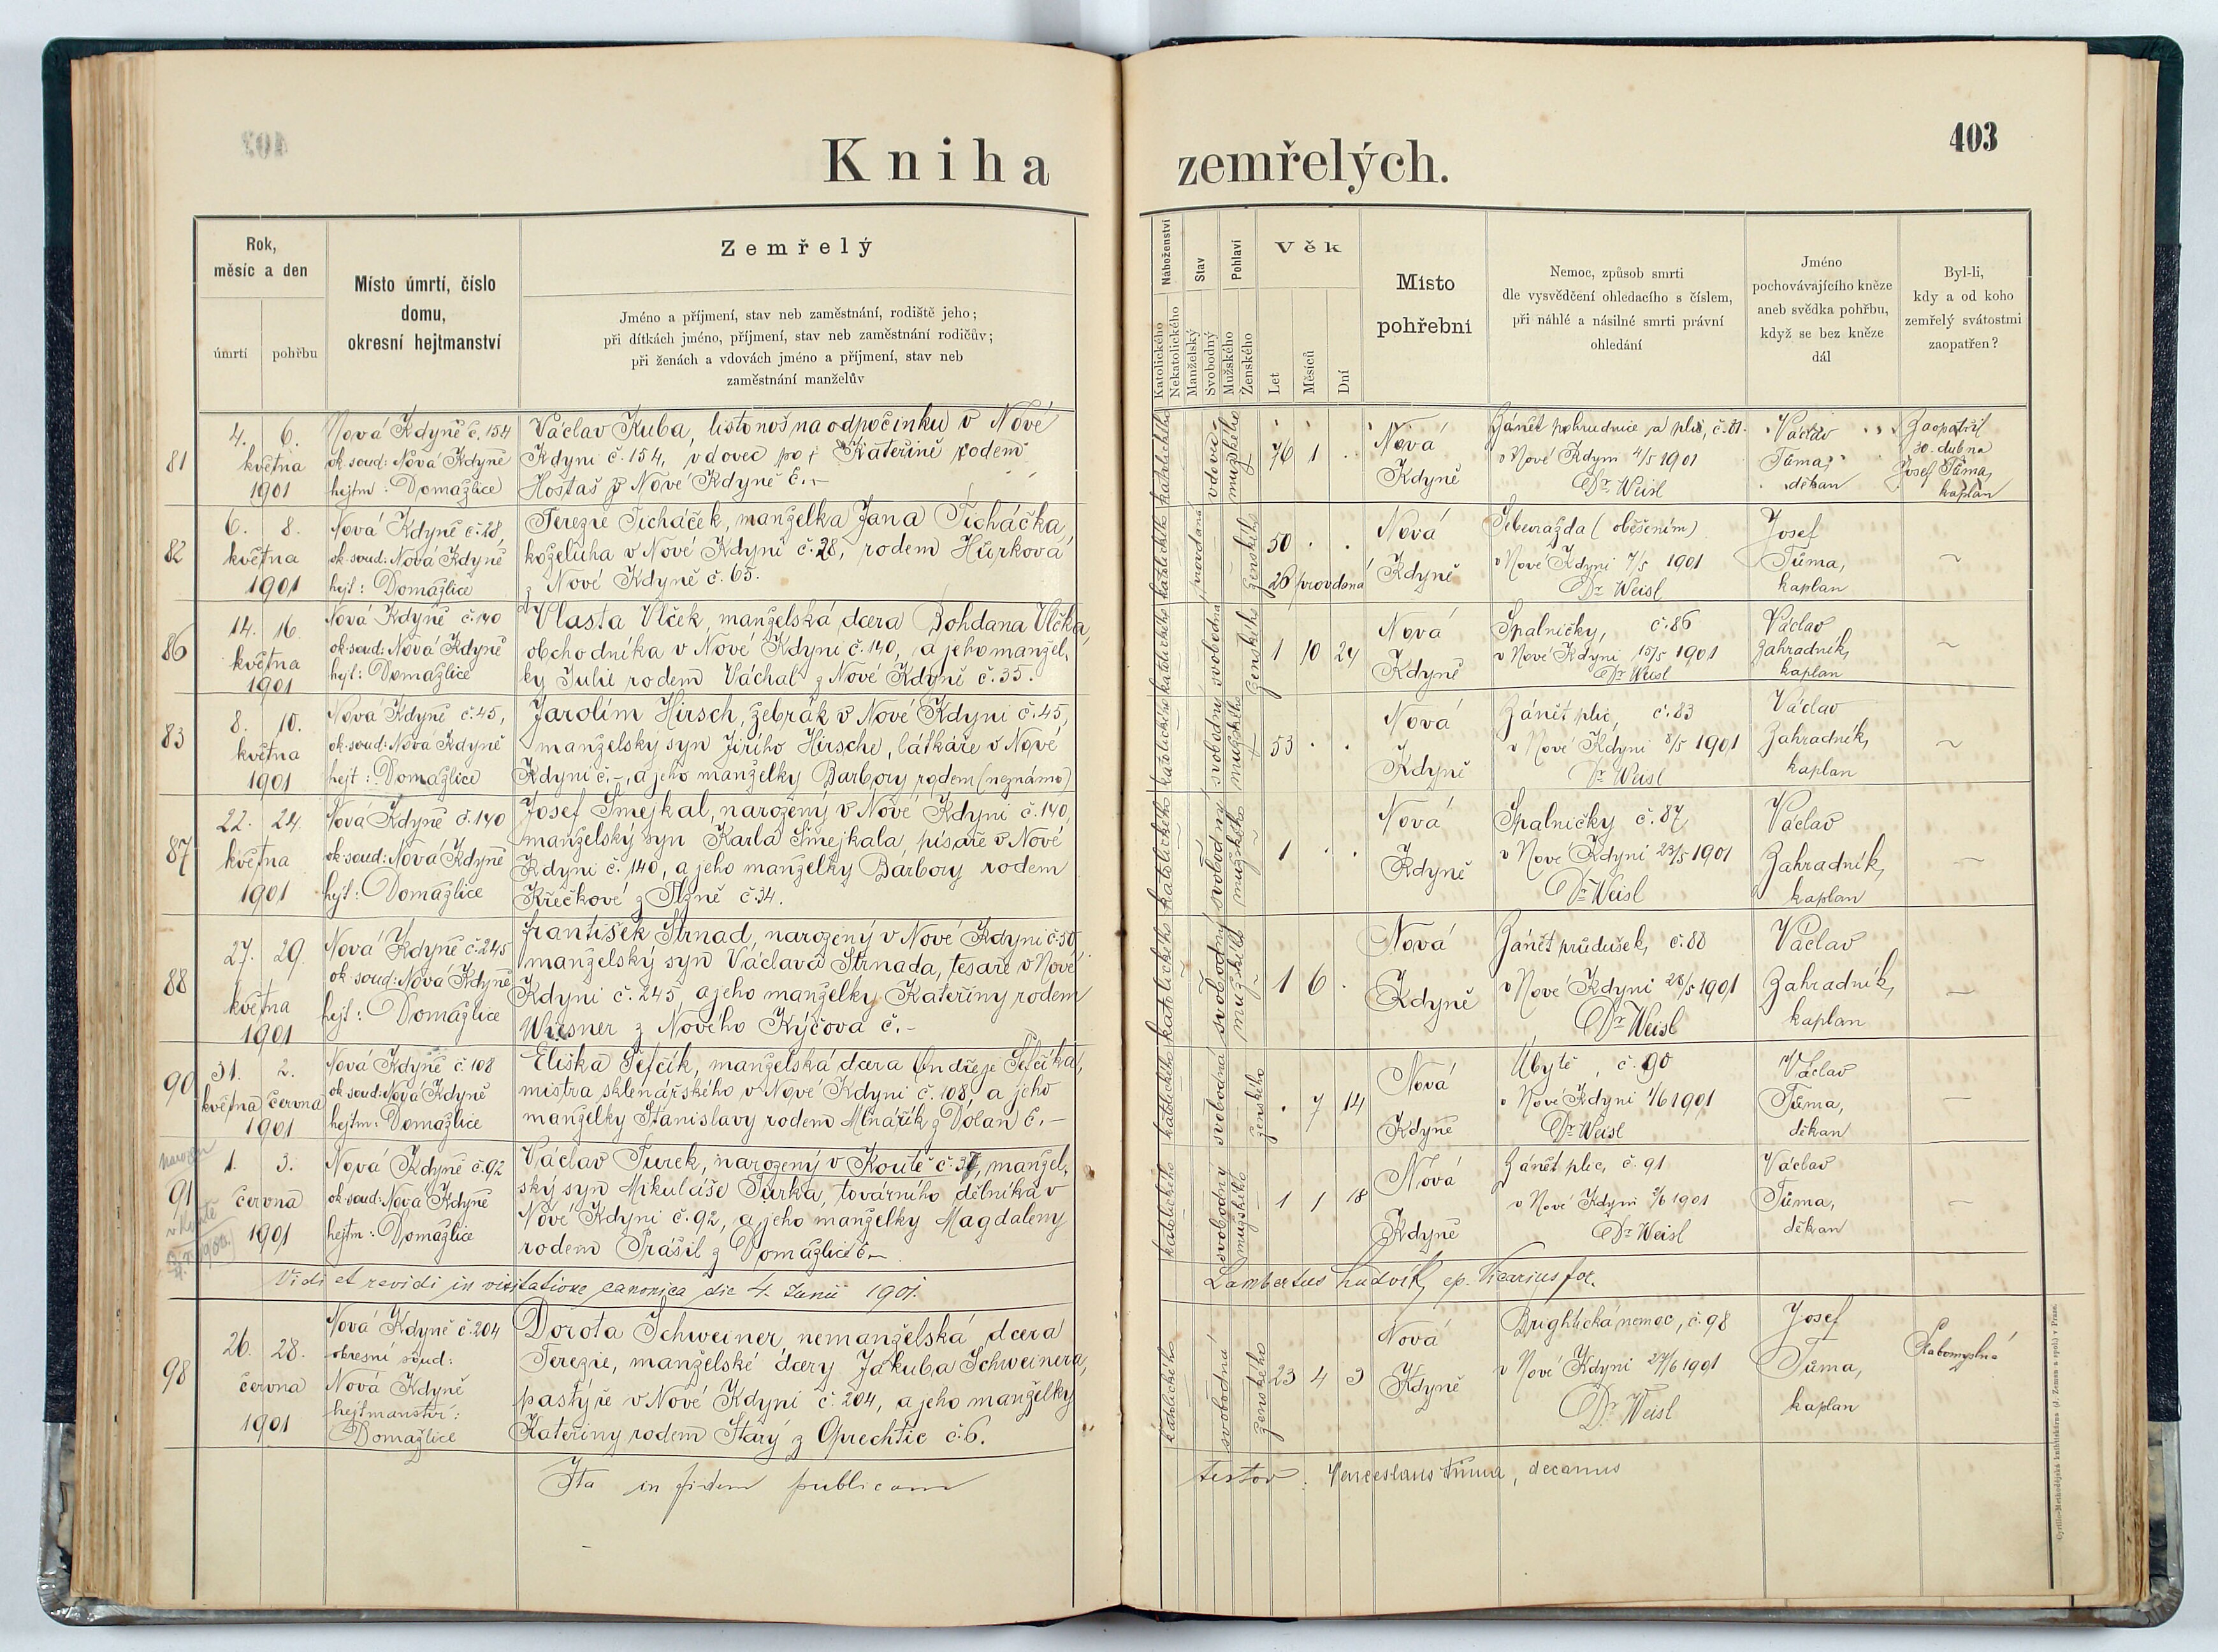 403
Kniha zemřelých.
Rok,
měsíc a den
úmrtí
pohřbu
Místo úmrtí, číslo
domu,
okresní hejtmanství
Zemřelý
Jméno a příjmení, stav neb zaměstnání, rodiště jeho;
při dítkách jméno, příjmení, stav neb zaměstnání rodičův;
při ženách a vdovách jméno a příjmení, stav neb
zaměstnání manželův
Náboženství
Katolického
Nekatolického
Stav
Manželský
Svobodný
Pohlaví
Mužského
Ženského
Věk
Let
Měsíců
Dní
Místo
pohřební
Nemoc, způsob smrti
dle vysvědčení ohledacího s číslem,
při náhlé a násilné smrti právní
ohledání
Jméno
pochovávajícího kněze
aneb svědka pohřbu,
když se bez kněze
dál
Byl-li,
kdy a od koho
zemřelý svátostmi
zaopatřen?
81
4. 6.
května
1901
Nová Kdyně č. 154
ok. soud: Nová Kdyně
hejtm: Domažlice
Václav Kuba, listonoš na odpočinku v Nové
Kdyni č. 154, vdovec po † Kateřině rodem
Hostaš z Nové Kdyně č. –
katolického
vdovec
mužského
76 1 .
Nová
Kdyně
Zánět pohrudnice a plic, č. 81.
v Nové Kdyni 4/5 1901
Dr Weisl
Václav
Tůma,
děkan
Zaopatřil
30. dubna
Josef Tůma,
kaplan
82
6. 8.
května
1901
Nová Kdyně č. 28,
ok. soud: Nová Kdyně
hejt: Domažlice
Terezie Ticháček, manželka Jana Ticháčka,
koželuha v Nové Kdyni č. 28, rodem Hůrková
z Nové Kdyně č. 65.
katolického
provdaná
ženského
50 . .
26 provdaná
Nová
Kdyně
Sebevražda (oběšením)
v Nové Kdyni 7/5 1901
Dr Weisl
Josef
Tůma,
kaplan
86
14. 16.
května
1901
Nová Kdyně č. 140
ok. soud: Nová Kdyně
hejt: Domažlice
Vlasta Vlček, manželská dcera Bohdana Vlčka,
obchodníka v Nové Kdyni č. 140, a jeho manžel-
ky Julie rodem Váchal z Nové Kdyně č. 35.
katolického
svobodná
ženského
1 10 24
Nová
Kdyně
Spalničky, č. 86
v Nové Kdyni 15/5 1901
Dr Weisl
Václav
Zahradník,
kaplan
83
8. 10.
května
1901
Nová Kdyně č. 45,
ok. soud: Nová Kdyně
hejt: Domažlice
Jarolím Hirsch, žebrák v Nové Kdyni č. 45,
manželský syn Jiřího Hirsche, látkáře v Nové
Kdyni č. –, a jeho manželky Barbory rodem (neznámo)
katolického
svobodný
mužského
53 . .
Nová
Kdyně
Zánět plic, č. 83
v Nové Kdyni 8/5 1901
Dr Weisl
Václav
Zahradník,
kaplan
87
22. 24.
května
1901
Nová Kdyně č. 140
ok. soud: Nová Kdyně
hejt: Domažlice
Josef Smejkal, narozený v Nové Kdyni č. 140,
manželský syn Karla Smejkala, písaře v Nové
Kdyni č. 140, a jeho manželky Barbory rodem
Křečkové z Plzně č. 34.
katolického
svobodný
mužského
1 . .
Nová
Kdyně
Spalničky č. 87,
v Nové Kdyni 23/5 1901
Dr Weisl
Václav
Zahradník,
kaplan
88
27. 29.
května
1901
Nová Kdyně č. 245
ok. soud: Nová Kdyně
hejt: Domažlice
František Strnad, narozený v Nové Kdyni č. 50,
manželský syn Václava Strnada, tesaře v Nové
Kdyni č. 245, a jeho manželky Kateřiny rodem
Wiesner z Nového Kýčova č. –
katolického
svobodný
mužského
1 6 .
Nová
Kdyně
Zánět průdušek, č. 88
v Nové Kdyni 28/5 1901
Dr Weisl
Václav
Zahradník,
kaplan
90
31. 2.
května června
1901
Nová Kdyně č. 108
ok. soud: Nová Kdyně
hejtm: Domažlice
Eliška Šefčík, manželská dcera Ondřeje Šefčíka,
mistra sklenářského v Nové Kdyni č. 108, a jeho
manželky Stanislavy rodem Mlnařík z Dolan č. –
katolického
svobodná
ženského
. 7 14
Nová
Kdyně
Úbytě, č. 90
v Nové Kdyni 1/6 1901
Dr Weisl
Václav
Tůma,
děkan
narozen
91
v Koutě
1. 3.
června
1901
Nová Kdyně č. 92
ok. soud: Nová Kdyně
hejtm: Domažlice
Václav Turek, narozený v Koutě č. 37, manžel-
ský syn Mikuláše Turka, továrního dělníka v
Nové Kdyni č. 92, a jeho manželky Magdaleny
rodem Prášil z Domažlic č. –
katolického
svobodný
mužského
1 1 18
Nová
Kdyně
Zánět plic, č. 91
v Nové Kdyni 2/6 1901
Dr Weisl
Václav
Tůma,
děkan
Vidi et revidi in visitatione canonica die 4. Junii 1901. Lambertus Ludvík, ep. Vicarius for.
98
26. 28.
června
1901
Nová Kdyně č. 204
okresní soud:
Nová Kdyně
hejtmanství:
Domažlice
Dorota Schweiner, nemanželská dcera
Terezie, manželské dcery Jakuba Schweinera,
pastýře v Nové Kdyni č. 204, a jeho manželky
Kateřiny rodem Starý z Oprechtic č. 6.
katolického
svobodná
ženského
23 4 3
Nová
Kdyně
Brightická nemoc, č. 98
v Nové Kdyni 27/6 1901
Dr Weisl
Josef
Tůma,
kaplan
Slabomyslná
Ita in fidem publicam testor: Venceslaus Tůma, decanus
Cyrillo-Methodějská knihtiskárna (J. Zeman a spol.) v Praze.